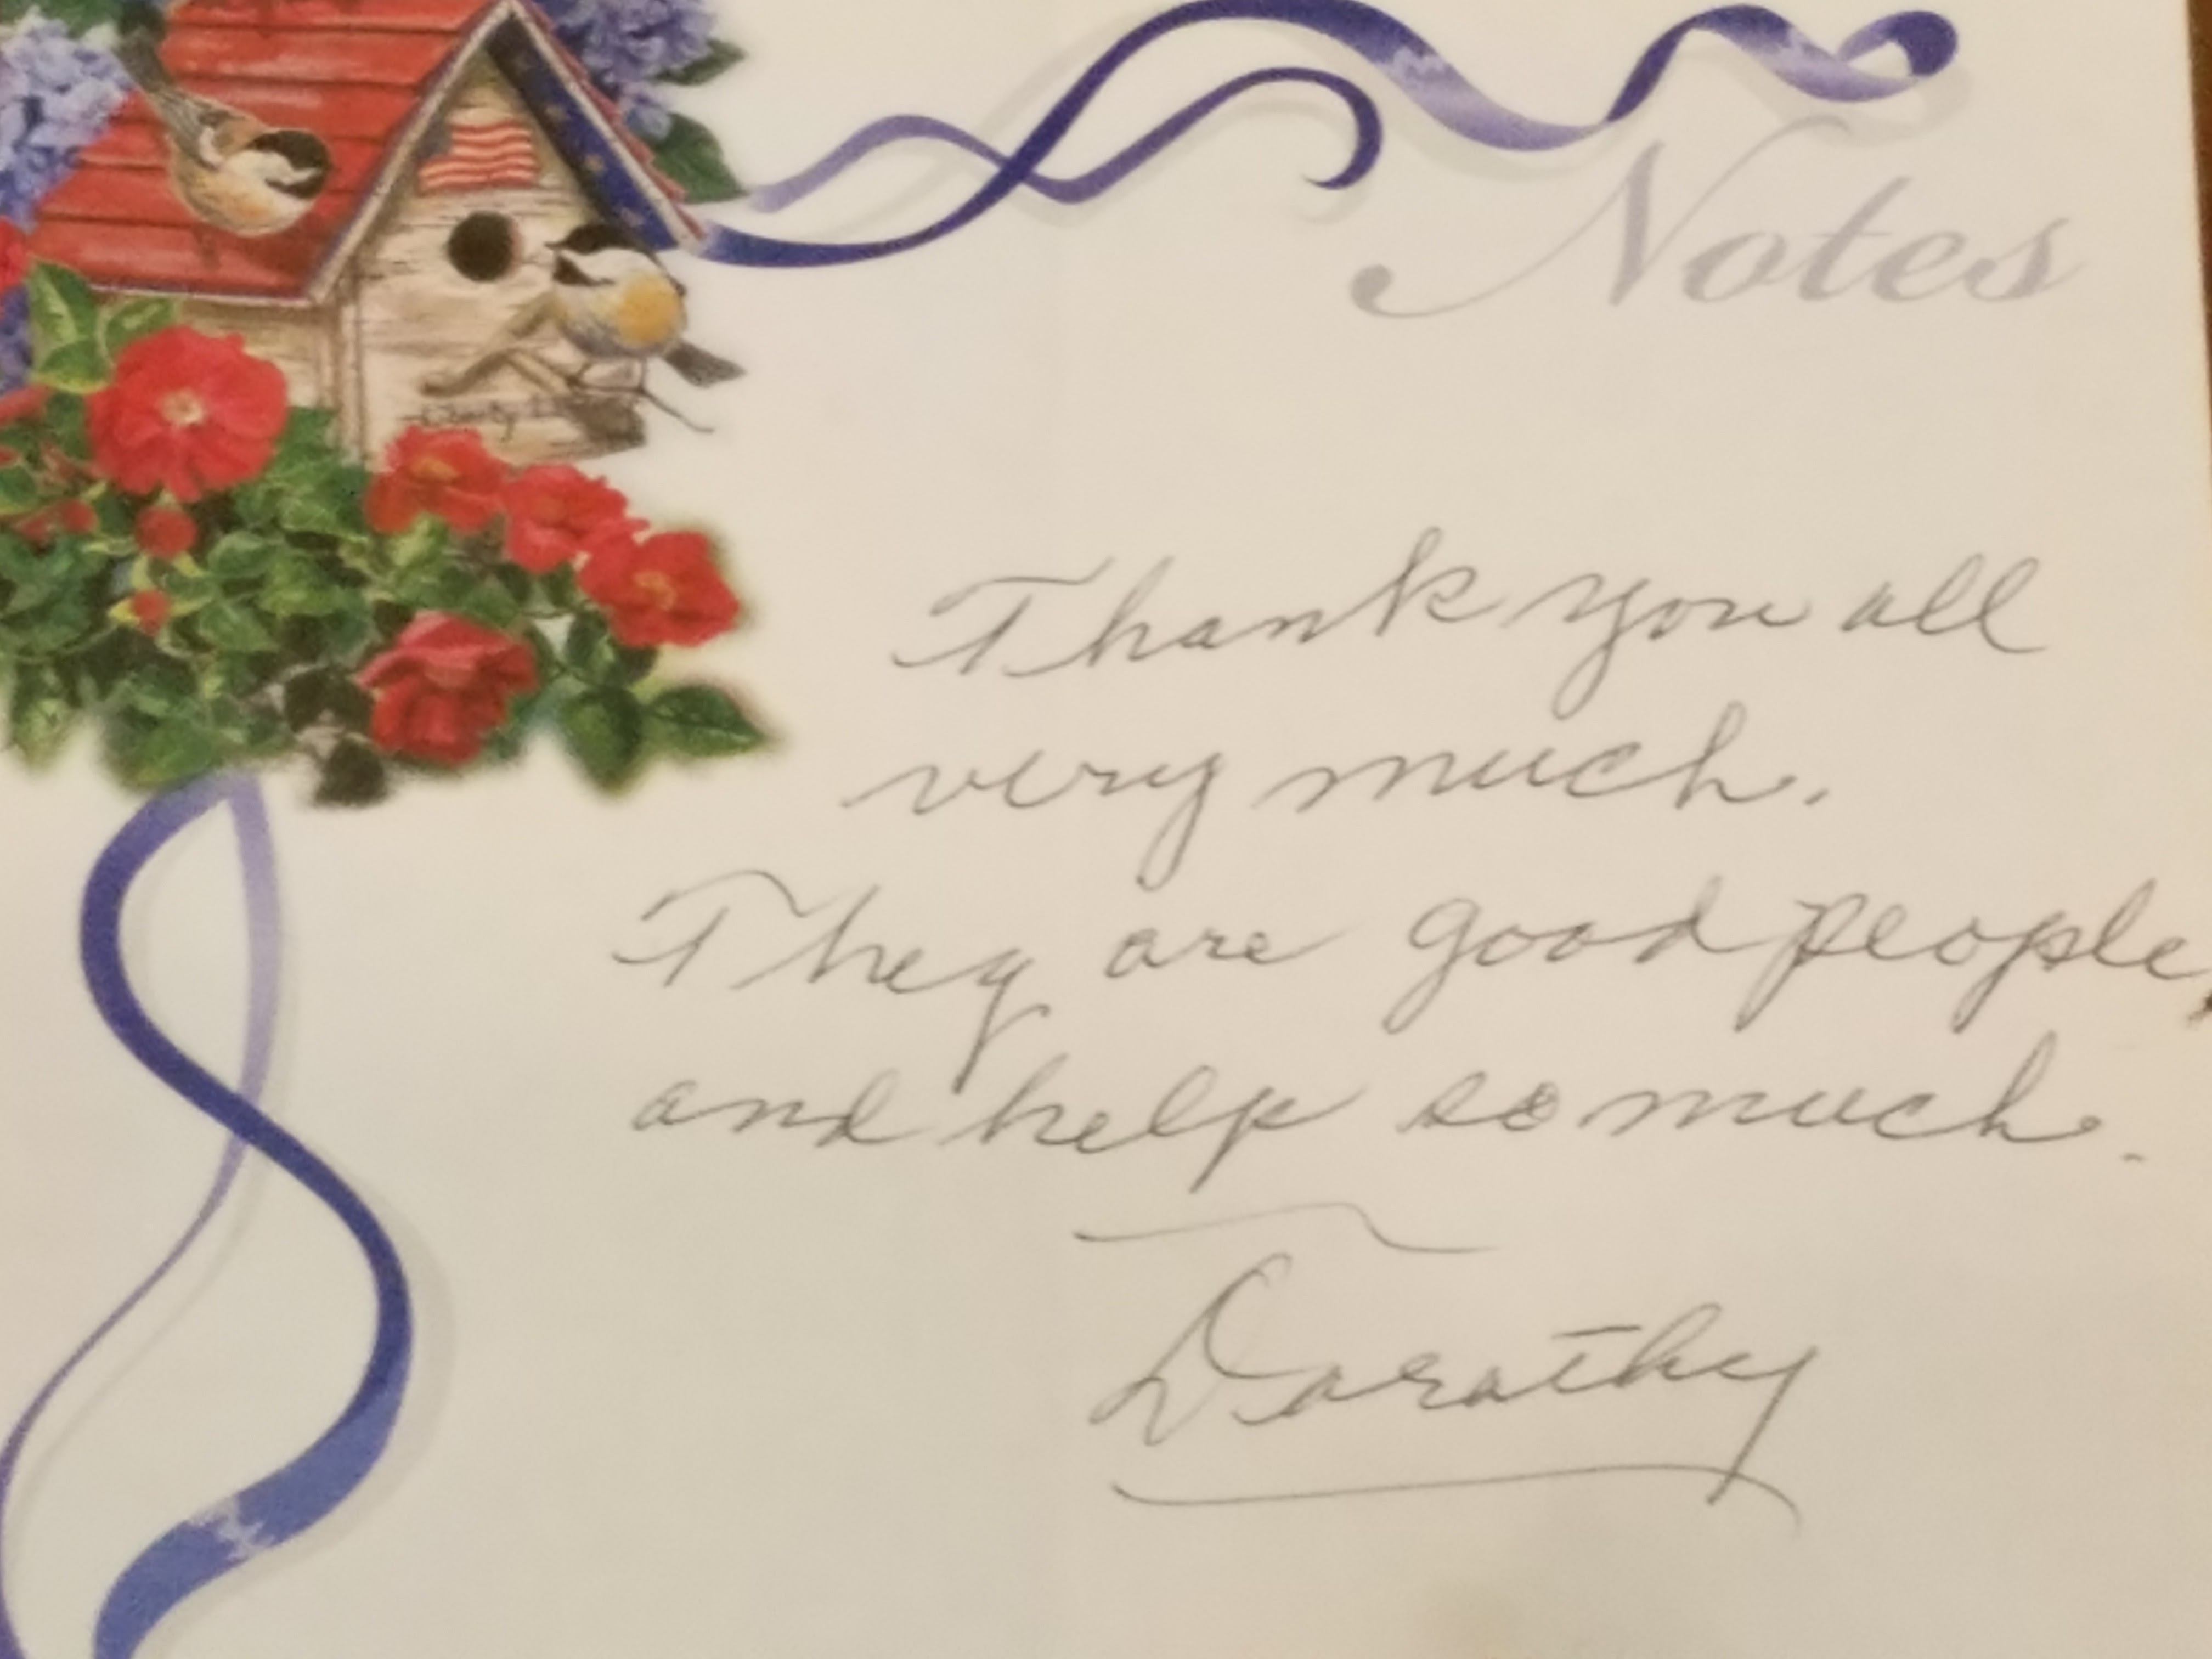 Notes
Thank you all
very much.
They are good people,
and help so much.
Dorothy